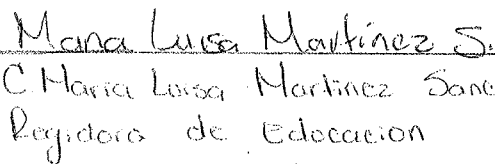 Maria Luisa Martínez S.
C. Maria Luisa Martinez Sanc
Regidora de Educacion